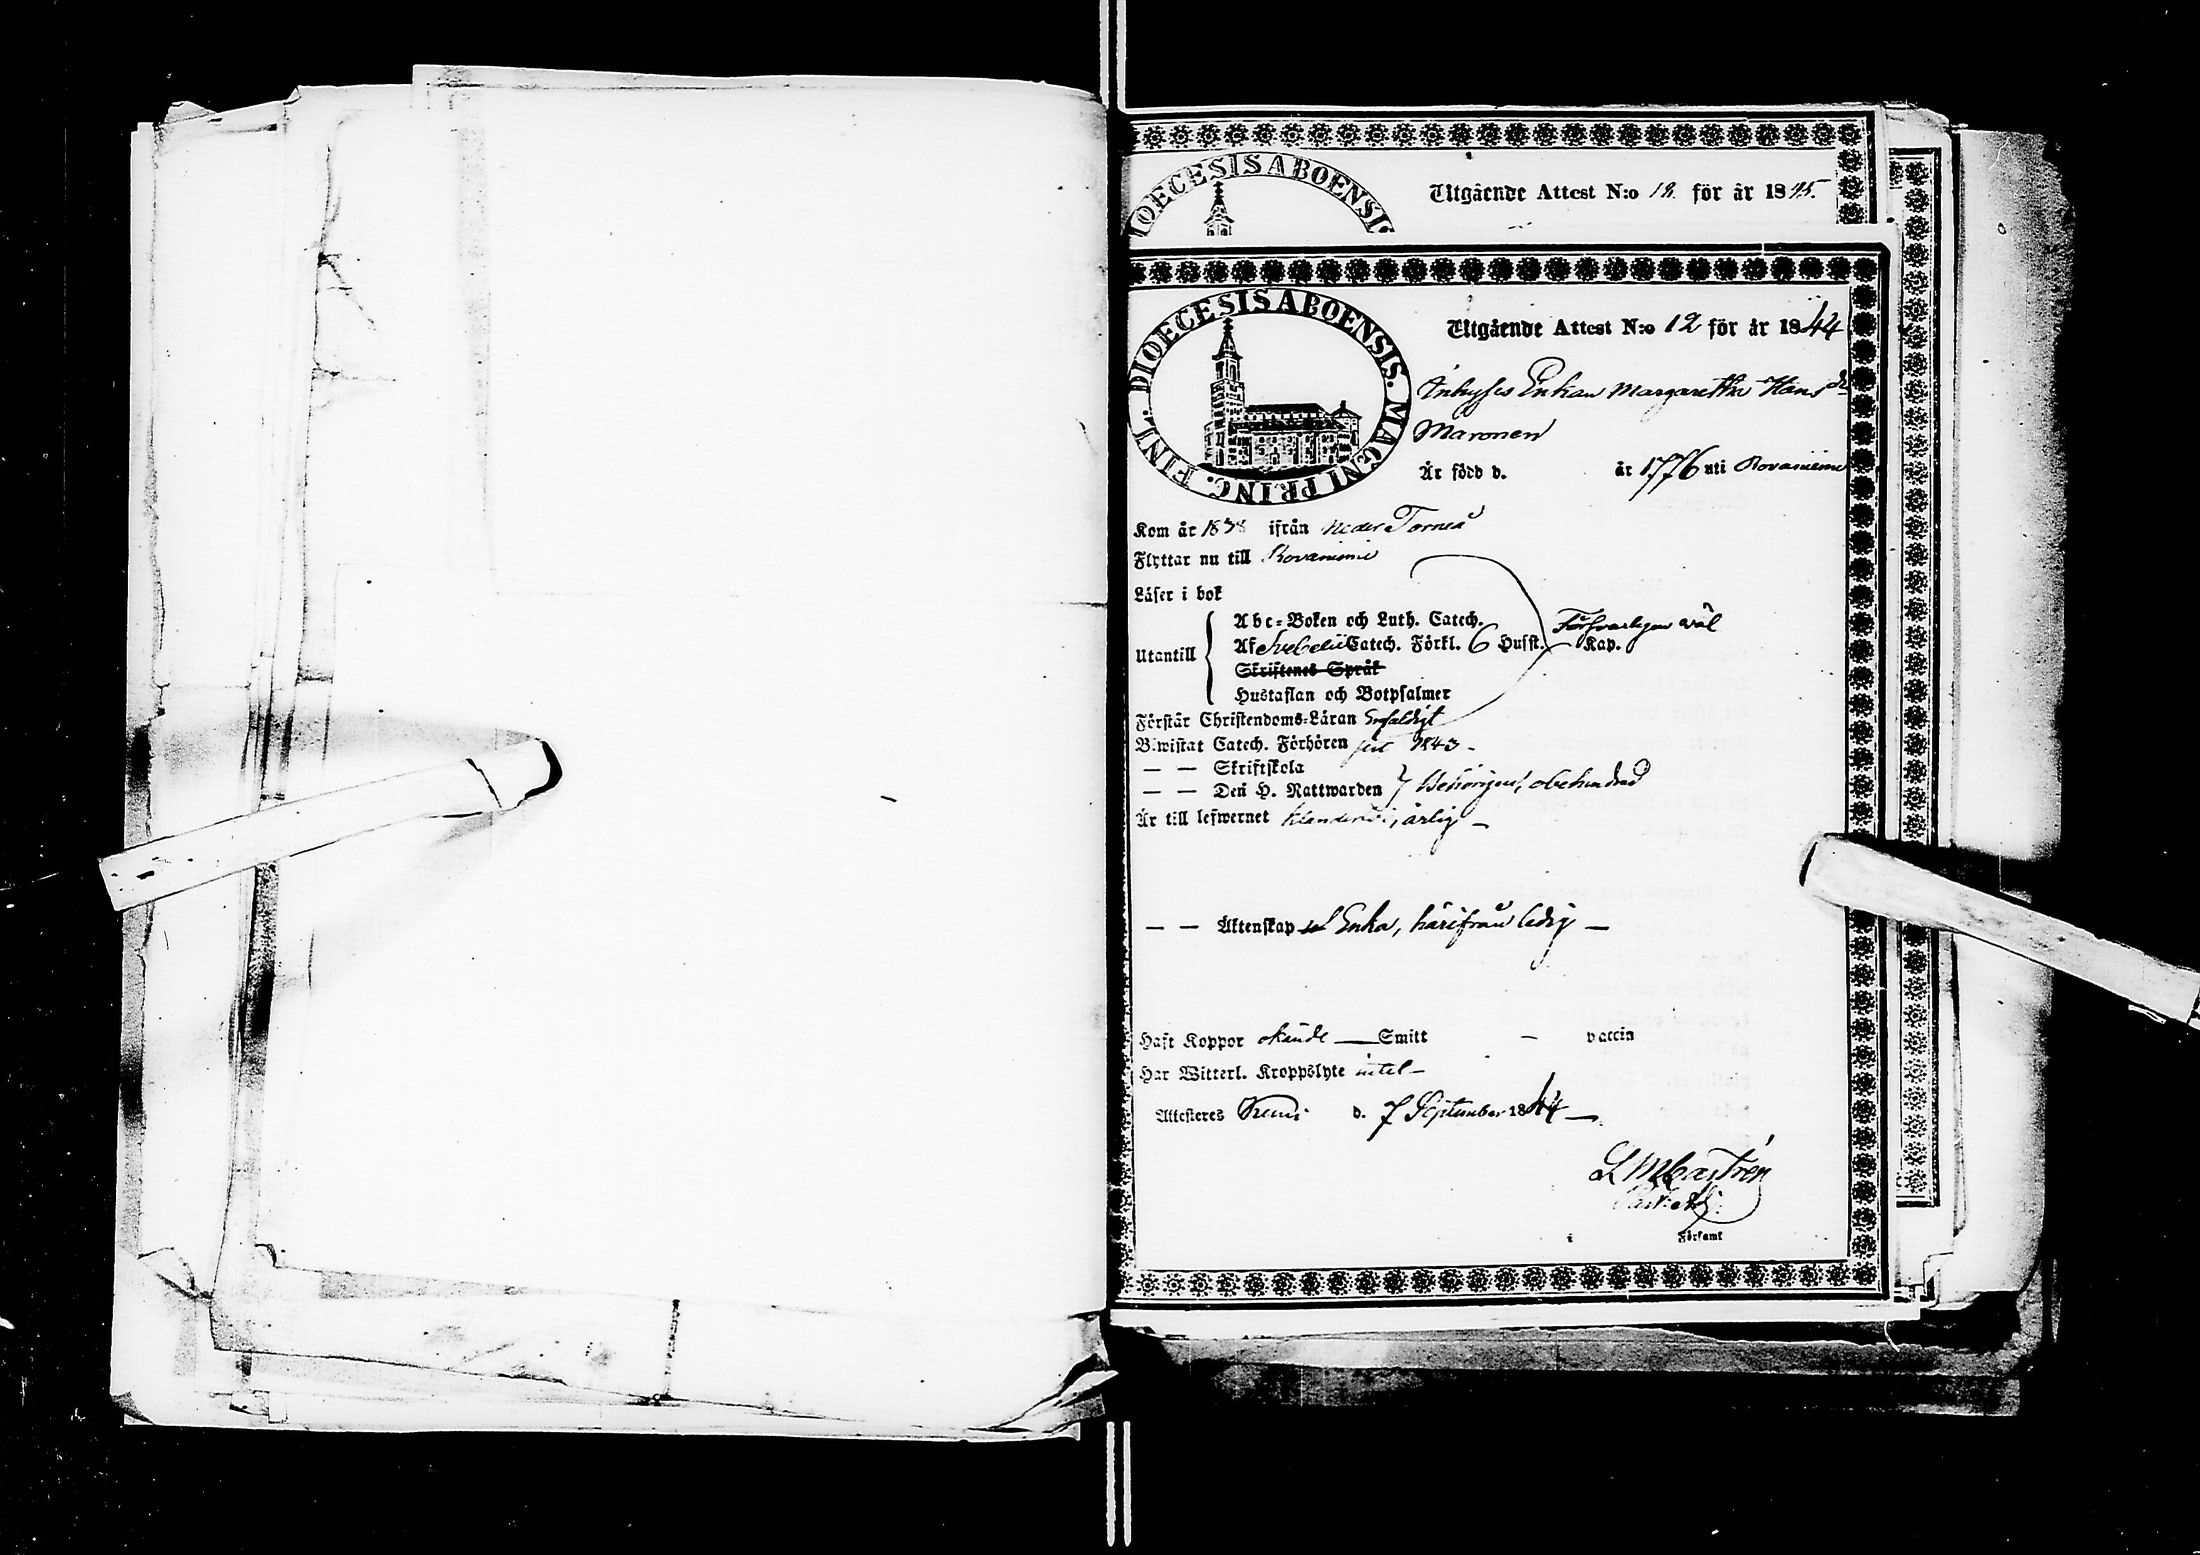 DIOECESIS ABOENSI
Utgående Attest N:o 12 för år 1845.
DIOECESIS ABOENSIS. MAGNI PRINC. FINL.
Utgående Attest N:o 12 för år 1844
Inhyses Enkan Margaretha Hansdr
Maronen
Är född d. år 1776 uti Rovaniemi
Kom år 1838 ifrån Neder Torneå
Flyttar nu till Rovaniemi
Läser i bok
Abc-Boken och Luth. Catech. Försvarligen wäl
Utantill Af Svebelii Catech. Förkl. 6 Hufst. Kap.
Skriftenes Språk
Hustaflan och Botpsalmer
Förstår Christendoms-Läran Enfaldigt
Biwistat Catech. Förhören 1843
— — Skriftskola
— — Den H. Nattwarden behörigen, obehindrad
Är till lefwernet klanderlös, ärlig —
— — Äktenskap Enka, härifrån ledig —
Haft Koppor okändt — Smitt — vaccin
Har Witterl. Kroppslyte intet —
Attesteres Kemi d. 7 September 1844 —
L M Castrén
i Församl